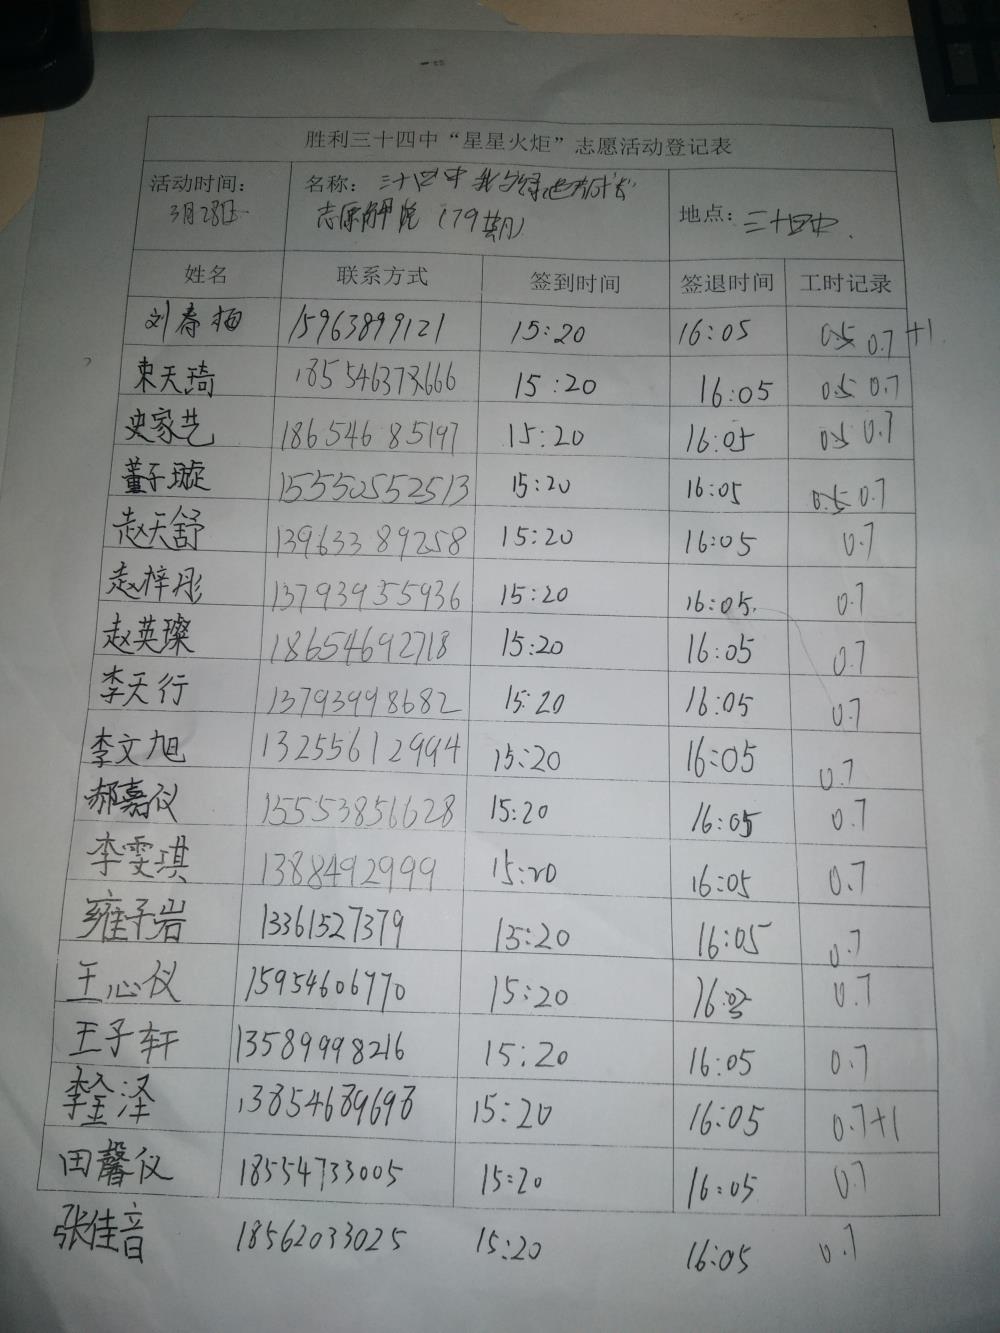 胜利三十四中“星星火炬”志愿活动登记表
活动时间: 名称: 三十四中我与绿地共成长 地点: 三十四中.
3月28日 志愿 (79期)
姓名 联系方式 签到时间 签退时间 工时记录
刘春梅 15963899121 15:20 16:05 0.5 0.7 +1
束天琦 18554637666 15:20 16:05 0.5 0.7
史家艺 18654685197 15:20 16:05 0.5 0.7
董子璇 15550552513 15:20 16:05 0.5 0.7
赵天舒 13963389258 15:20 16:05 0.7
赵梓彤 13793955936 15:20 16:05. 0.7
赵英璨 18654692718 15:20 16:05 0.7
李天行 13793998682 15:20 16:05 0.7
李文旭 13255612994 15:20 16:05 0.7
郝嘉仪 15553856628 15:20 16:05 0.7
李雯琪 1388492999 15:20 16:05 0.7
雍子岩 13361527379 15:20 16:05 0.7
王心仪 15954606770 15:20 16:05 0.7
王子轩 13589998216 15:20 16:05 0.7
李金泽 13854689698 15:20 16:05 0.7+1
田馨仪 18554733005 15:20 16:05 0.7
张佳音 18562033025 15:20 16:05 0.7